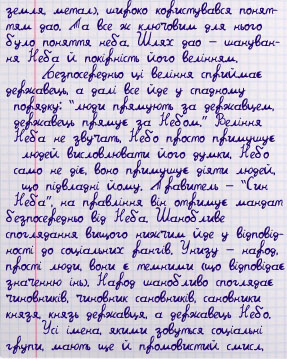 земля, метал), широко користувався понят-
тям дао. Та все ж ключовим для нього
було поняття неба. Шлях дао – шануван-
ня Неба й покірність його велінням.
Безпосередньо ці веління сприймає
державець, а далі все йде у спадному
порядку: "люди прямують за державцем,
державець прямує за Небом." Веління
Неба не звучать, Небо просто примушує
людей висловлювати його думки. Небо
само не діє, воно примушує діяти людей,
що підвладні йому. Правитель – "Син
Неба", на правління він отримує мандат
безпосередньо від Неба. Шанобливе
споглядання вищого нижчим йде у відповід-
ності до соціальних рангів. Унизу – народ,
прості люди, вони є темними (що відповідає
значенню інь). Народ шанобливо споглядає
чиновників, чиновник сановників, сановники
князя, князь державця, а державець Небо.
Усі імена, якими зовуться соціальні
групи, мають ще й промовистий смисл.